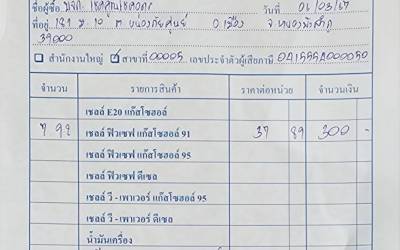 ชื่อผู้ซื้อ หจก. โชคสุณโชคอกร วันที่ 06/03/67
ที่อยู่ 189 ม.10 ต.หนองภัยศูนย์ อ.เมือง จ.หนองบัวลำภู
39000
สำนักงานใหญ่ สาขาที่ 00005 เลขประจำตัวผู้เสียภาษี
จำนวน รายการสินค้า ราคาต่อหน่วย จำนวนเงิน
เชลล์ E20 แก๊สโซฮอล์
7 92 เชลล์ ฟิวเซฟ แก๊สโซฮอล์ 91 37 89 300 -
เชลล์ ฟิวเซฟ แก๊สโซฮอล์ 95
เชลล์ ฟิวเซฟ ดีเซล
เชลล์ วี - เพาเวอร์ แก๊สโซฮอล์ 95
เชลล์ วี - เพาเวอร์ ดีเซล
น้ำมันเครื่อง